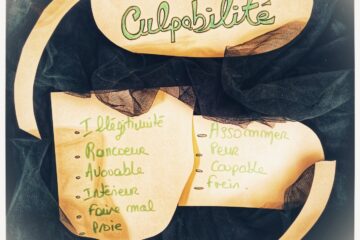 Culpabilité
Illégitimité
Rancoeur
Avouable
Intérieur
Faire mal
Proie
Assommer
Peur
Coupable
Frein.